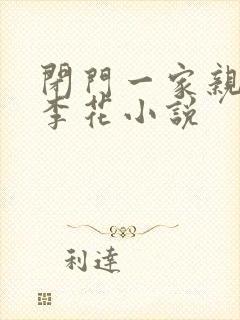 閉門一家親
李花小說
利達